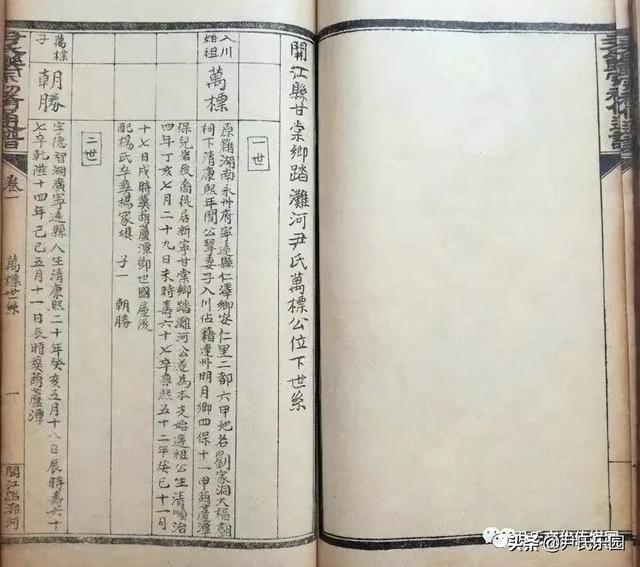 開江縣甘棠鄉踏灘河尹氏萬標公位下世系
一世
入川始祖
萬標
原籍湖南永州府寧遠縣仁澤鄉安仁里二都六甲地名劉家洞大福廟
祠下清康熙年間公挈妻子入川佔籍達州明月鄉四保十一甲葫蘆潭
保兒岩後裔徙居新寧甘棠鄉踏灘河公遂為本支始遷祖公生清順治
四年丁亥七月二十九日未時壽六十七卒康熙五十二年癸巳十一月
十七日戌時葬葫蘆潭鄧世國屋後
配楊氏卒葬楊家垻 子一 朝勝
二世
萬標子
朝勝
字德智湖廣寧遠縣人生清康熙二十年癸亥五月十八日辰時壽六十
七卒乾隆十四年己巳五月十一日辰時葬葫蘆潭
卷一
萬標世系
一
開江踏灘河
头条 @尹氏乐园